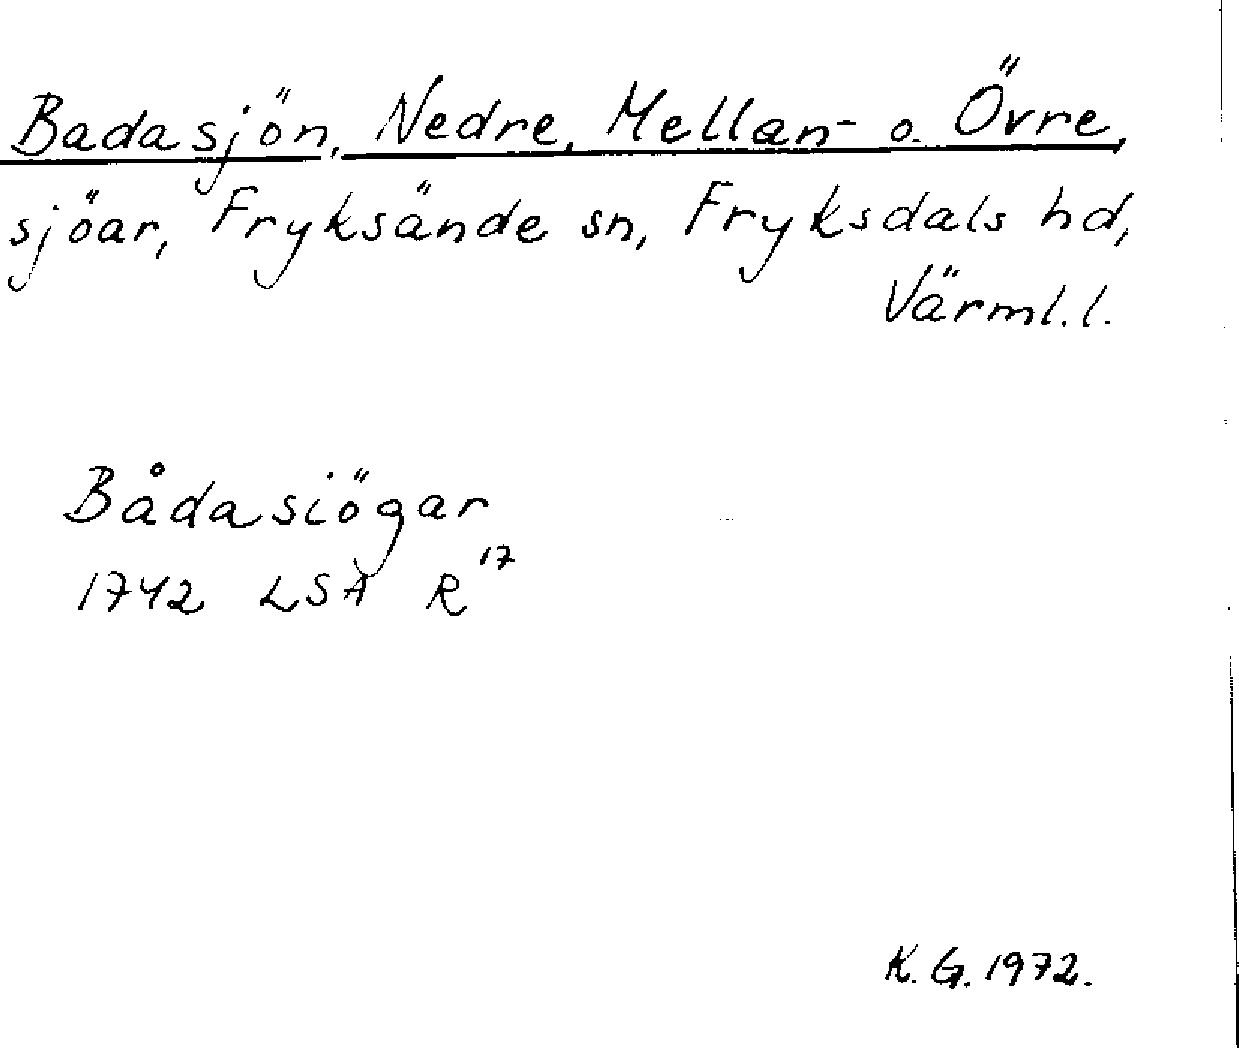 Badasjön, Nedre, Mellan- o. Övre,
sjöar, Fryksände sn, Fryksdals hd,
Värml. l.
Bådasiögar
1742 LSA R 17
K. G. 1972.